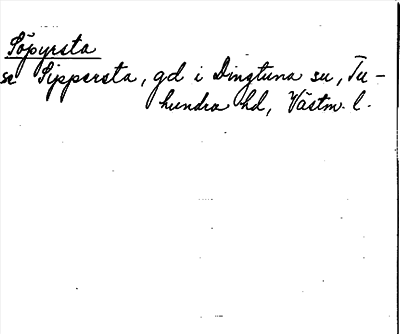 Söpyrsta
se Sippersta, gd i Dingtuna sn, Tu-
hundra hd, Västm. l.